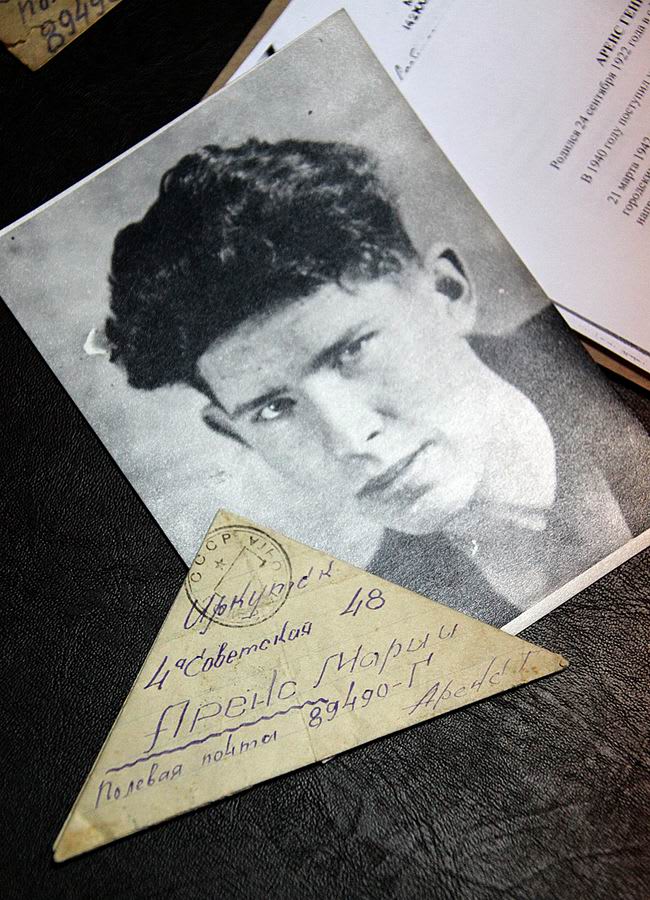 8949
АРЕНС ГЕН
Родился 24 сентября 1922 года в
В 1940 году поступил
21 марта 1942
городски
напр
СССР
Иркутск
4ᵃ Советская 48
Аренс Марии
Полевая почта 89490-Г
Аренс Г.